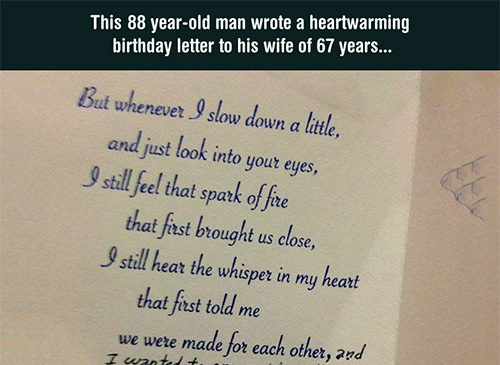 This 88 year-old man wrote a heartwarming
birthday letter to his wife of 67 years...
But whenever I slow down a little,
and just look into your eyes,
I still feel that spark of fire
that first brought us close,
I still hear the whisper in my heart
that first told me
we were made for each other, and
I wanted to